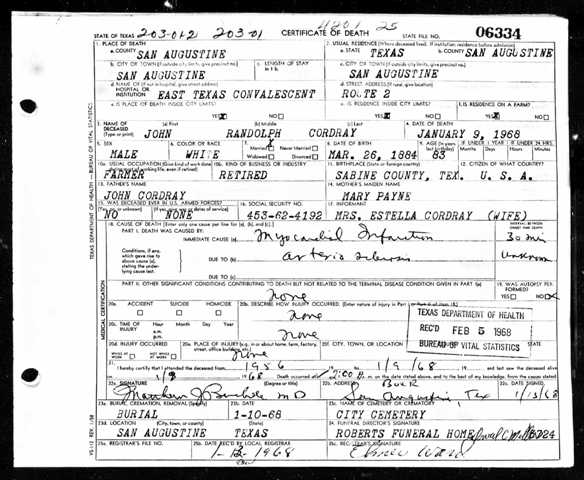 4201 25
203-012 203-01
STATE OF TEXAS CERTIFICATE OF DEATH STATE FILE NO. 06334
1. PLACE OF DEATH 2. USUAL RESIDENCE (Where deceased lived. If institution: residence before admission)
a. COUNTY SAN AUGUSTINE a. STATE TEXAS b. COUNTY SAN AUGUSTINE
b. CITY OR TOWN (If outside city limits, give precinct no.) c. LENGTH OF STAY in 1 b. c. CITY OR TOWN (If outside city limits, give precinct no.)
SAN AUGUSTINE SAN AUGUSTINE
d. NAME OF (If not in hospital, give street address) HOSPITAL OR INSTITUTION EAST TEXAS CONVALESCENT d. STREET ADDRESS (If rural, give location) ROUTE 2
e. IS PLACE OF DEATH INSIDE CITY LIMITS? YES NO e. IS RESIDENCE INSIDE CITY LIMITS? YES NO f. IS RESIDENCE ON A FARM? YES NO
3. NAME OF DECEASED (Type or print) (a) First (b) Middle (c) Last 4. DATE OF DEATH
JOHN RANDOLPH CORDRAY JANUARY 9, 1968
5. SEX 6. COLOR OR RACE 7. Married Never Married Widowed Divorced 8. DATE OF BIRTH 9. AGE (In years last birthday) IF UNDER 1 YEAR Months Days IF UNDER 24 HRS. Hours Minutes
MALE WHITE MAR. 26, 1884 83
10a. USUAL OCCUPATION (Give kind of work done during most of working life, even if retired) 10b. KIND OF BUSINESS OR INDUSTRY 11. BIRTHPLACE (State or foreign country) 12. CITIZEN OF WHAT COUNTRY?
FARMER RETIRED SABINE COUNTY, TEX. U. S. A.
13. FATHER'S NAME 14. MOTHER'S MAIDEN NAME
JOHN CORDRAY MARY PAYNE
15. WAS DECEASED EVER IN U.S. ARMED FORCES? 16. SOCIAL SECURITY NO. 17. INFORMANT
NO NONE 453-62-4192 MRS. ESTELLA CORDRAY (WIFE)
18. CAUSE OF DEATH [Enter only one cause per line for (a), (b), and (c).] INTERVAL BETWEEN ONSET AND DEATH
PART I. DEATH WAS CAUSED BY:
IMMEDIATE CAUSE (a) Myocardial Infarction 30 min
Conditions, if any, which gave rise to above cause (a), stating the underlying cause last.
DUE TO (b) arterio sclerosis unknown
DUE TO (c)
PART II. OTHER SIGNIFICANT CONDITIONS CONTRIBUTING TO DEATH BUT NOT RELATED TO THE TERMINAL DISEASE CONDITION GIVEN IN PART I (a) 19. WAS AUTOPSY PERFORMED?
none YES NO
20a. ACCIDENT SUICIDE HOMICIDE 20b. DESCRIBE HOW INJURY OCCURRED. (Enter nature of injury in Part I or Part II of item 18.)
none
20c. TIME OF INJURY Hour Month Day Year
none
20d. INJURY OCCURRED WHILE AT WORK NOT WHILE AT WORK 20e. PLACE OF INJURY (e.g., in or about home, farm, factory, street, office building, etc.) 20f. CITY, TOWN, OR LOCATION
none
TEXAS DEPARTMENT OF HEALTH
REC'D FEB 5 1968
BUREAU OF VITAL STATISTICS
21. I hereby certify that I attended the deceased from 1956 to 1/9/68 and last saw the deceased alive
68 Death occurred at 2:00 m. on the date stated above, and to the best of my knowledge, from the causes stated.
22a. SIGNATURE (Degree or title) 22b. ADDRESS Box R 22c. DATE SIGNED
M D San Augustine, Tex 1/13/68
23a. BURIAL, CREMATION, REMOVAL (Specify) 23b. DATE 23c. NAME OF CEMETERY OR CREMATORY
BURIAL 1-10-68 CITY CEMETERY
23d. LOCATION (City, town, or county) (State) 24. FUNERAL DIRECTOR'S SIGNATURE
SAN AUGUSTINE TEXAS ROBERTS FUNERAL HOME
25a. REGISTRAR'S FILE NO. 25b. DATE REC'D BY LOCAL REGISTRAR 25c. REGISTRAR'S SIGNATURE
1-12-1968 Ward
TEXAS DEPARTMENT OF HEALTH—BUREAU OF VITAL STATISTICS
MEDICAL CERTIFICATION